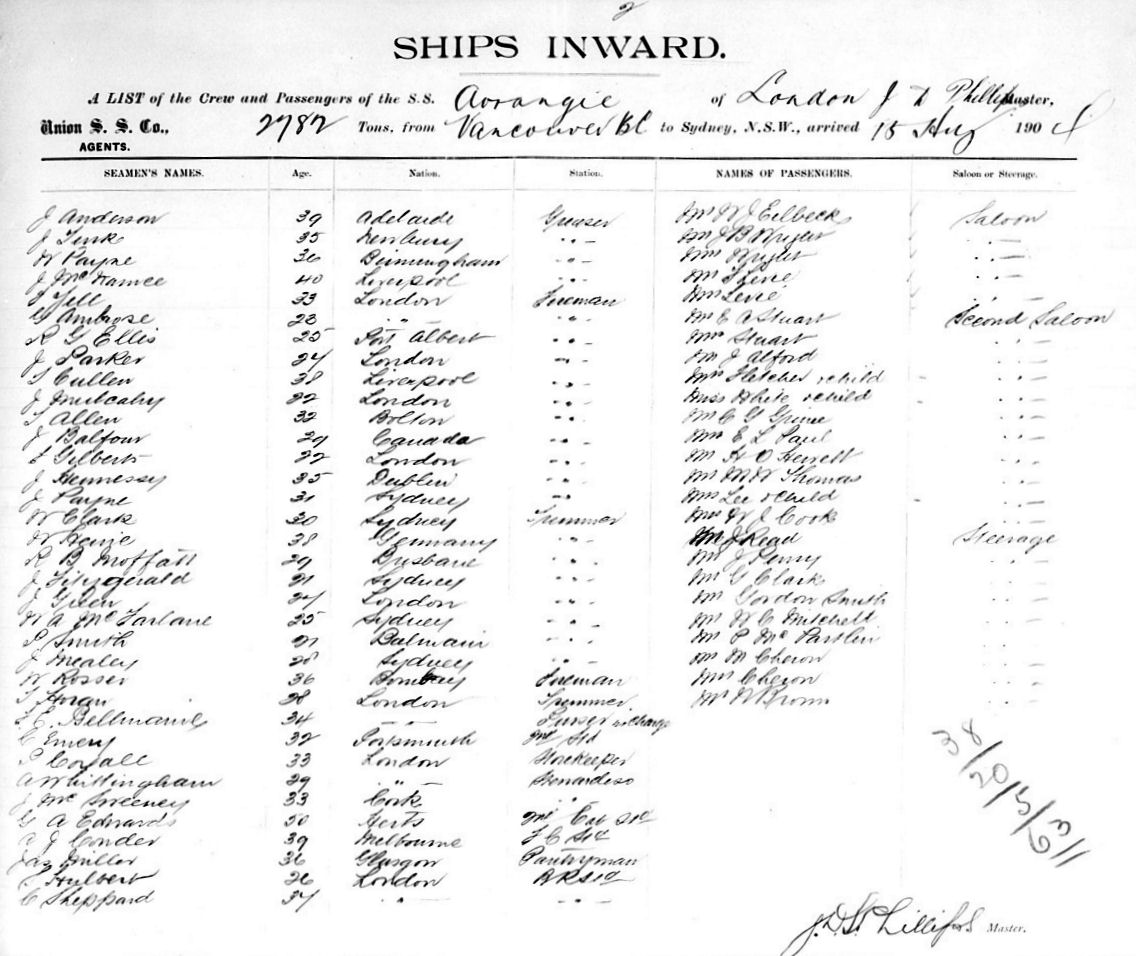 2
SHIPS INWARD.
A LIST of the Crew and Passengers of the S.S. Aorangie of London J D Phillips Master,
Union S. S. Co., 2782 Tons, from Vancouver BC to Sydney, N.S.W., arrived 15 Aug 1904
AGENTS.
SEAMEN'S NAMES. Age. Nation. Station. NAMES OF PASSENGERS. Saloon or Steerage.
J Anderson 39 Adelaide Greaser Mr W J Eilbeck Saloon
J Tink 35 Newbury " - Mr J B Wright " -
W Payne 36 Birmingham " - Mrs Wright " -
J McNamee 40 Liverpool " - Mr Levie " -
Jell 33 London Fireman Mrs Levie " -
G Ambrose 23 " " - Mr E A Stuart Second Saloon
R G Ellis 25 Port Albert " - Mrs Stuart " -
J Parker 24 London " - Mr J Alford " -
T Cullen 38 Liverpool " - Mrs Fletcher & child " -
J Mulcahy 22 London " - Miss White & child " -
T Allen 32 Bolton " - Mr C G " -
J Balfour 29 Canada " - Mrs E L Paul " -
Gilberts 22 London " - Mr H O Hewett " -
J Hennessy 35 Dublin " - Mr M W Thomas " -
J Payne 31 Sydney " - Mrs Lee & child " -
W Clark 30 Sydney Trimmer Mrs W J Cook " -
W 38 Germany " - Mr J Read Steerage
R B Moffatt 29 Brisbane " - Mr J Penny " -
J Fitzgerald 21 Sydney " - Mr G Clark " -
J Green 24 London " - Mr Gordon Smith " -
W A McFarlane 25 Sydney " - Mr W C Mitchell " -
P Smith 21 Balmain " - Mr P Mc Parslin " -
J Mealey 28 Sydney " - Mr M Cheron " -
W Rosser 36 Bombay Fireman Mrs Cheron " -
T Horan 28 London Trimmer Mr W Brown " -
Bellmaine 34 " - Purser in charge
C Emery 32 Portsmouth Std
P Coyall 33 London Storekeeper
A Whittingham 29 " -
J McSweeney 33 Cork "
G A Edwards 50 Herts Std
A J Conder 39 Melbourne Std
Jas Miller 36 Glasgow Pantryman
Hulbert 26 London Std
C Sheppard 34 " - " -
38/20/5/63//
J.D.S. Phillips Master.